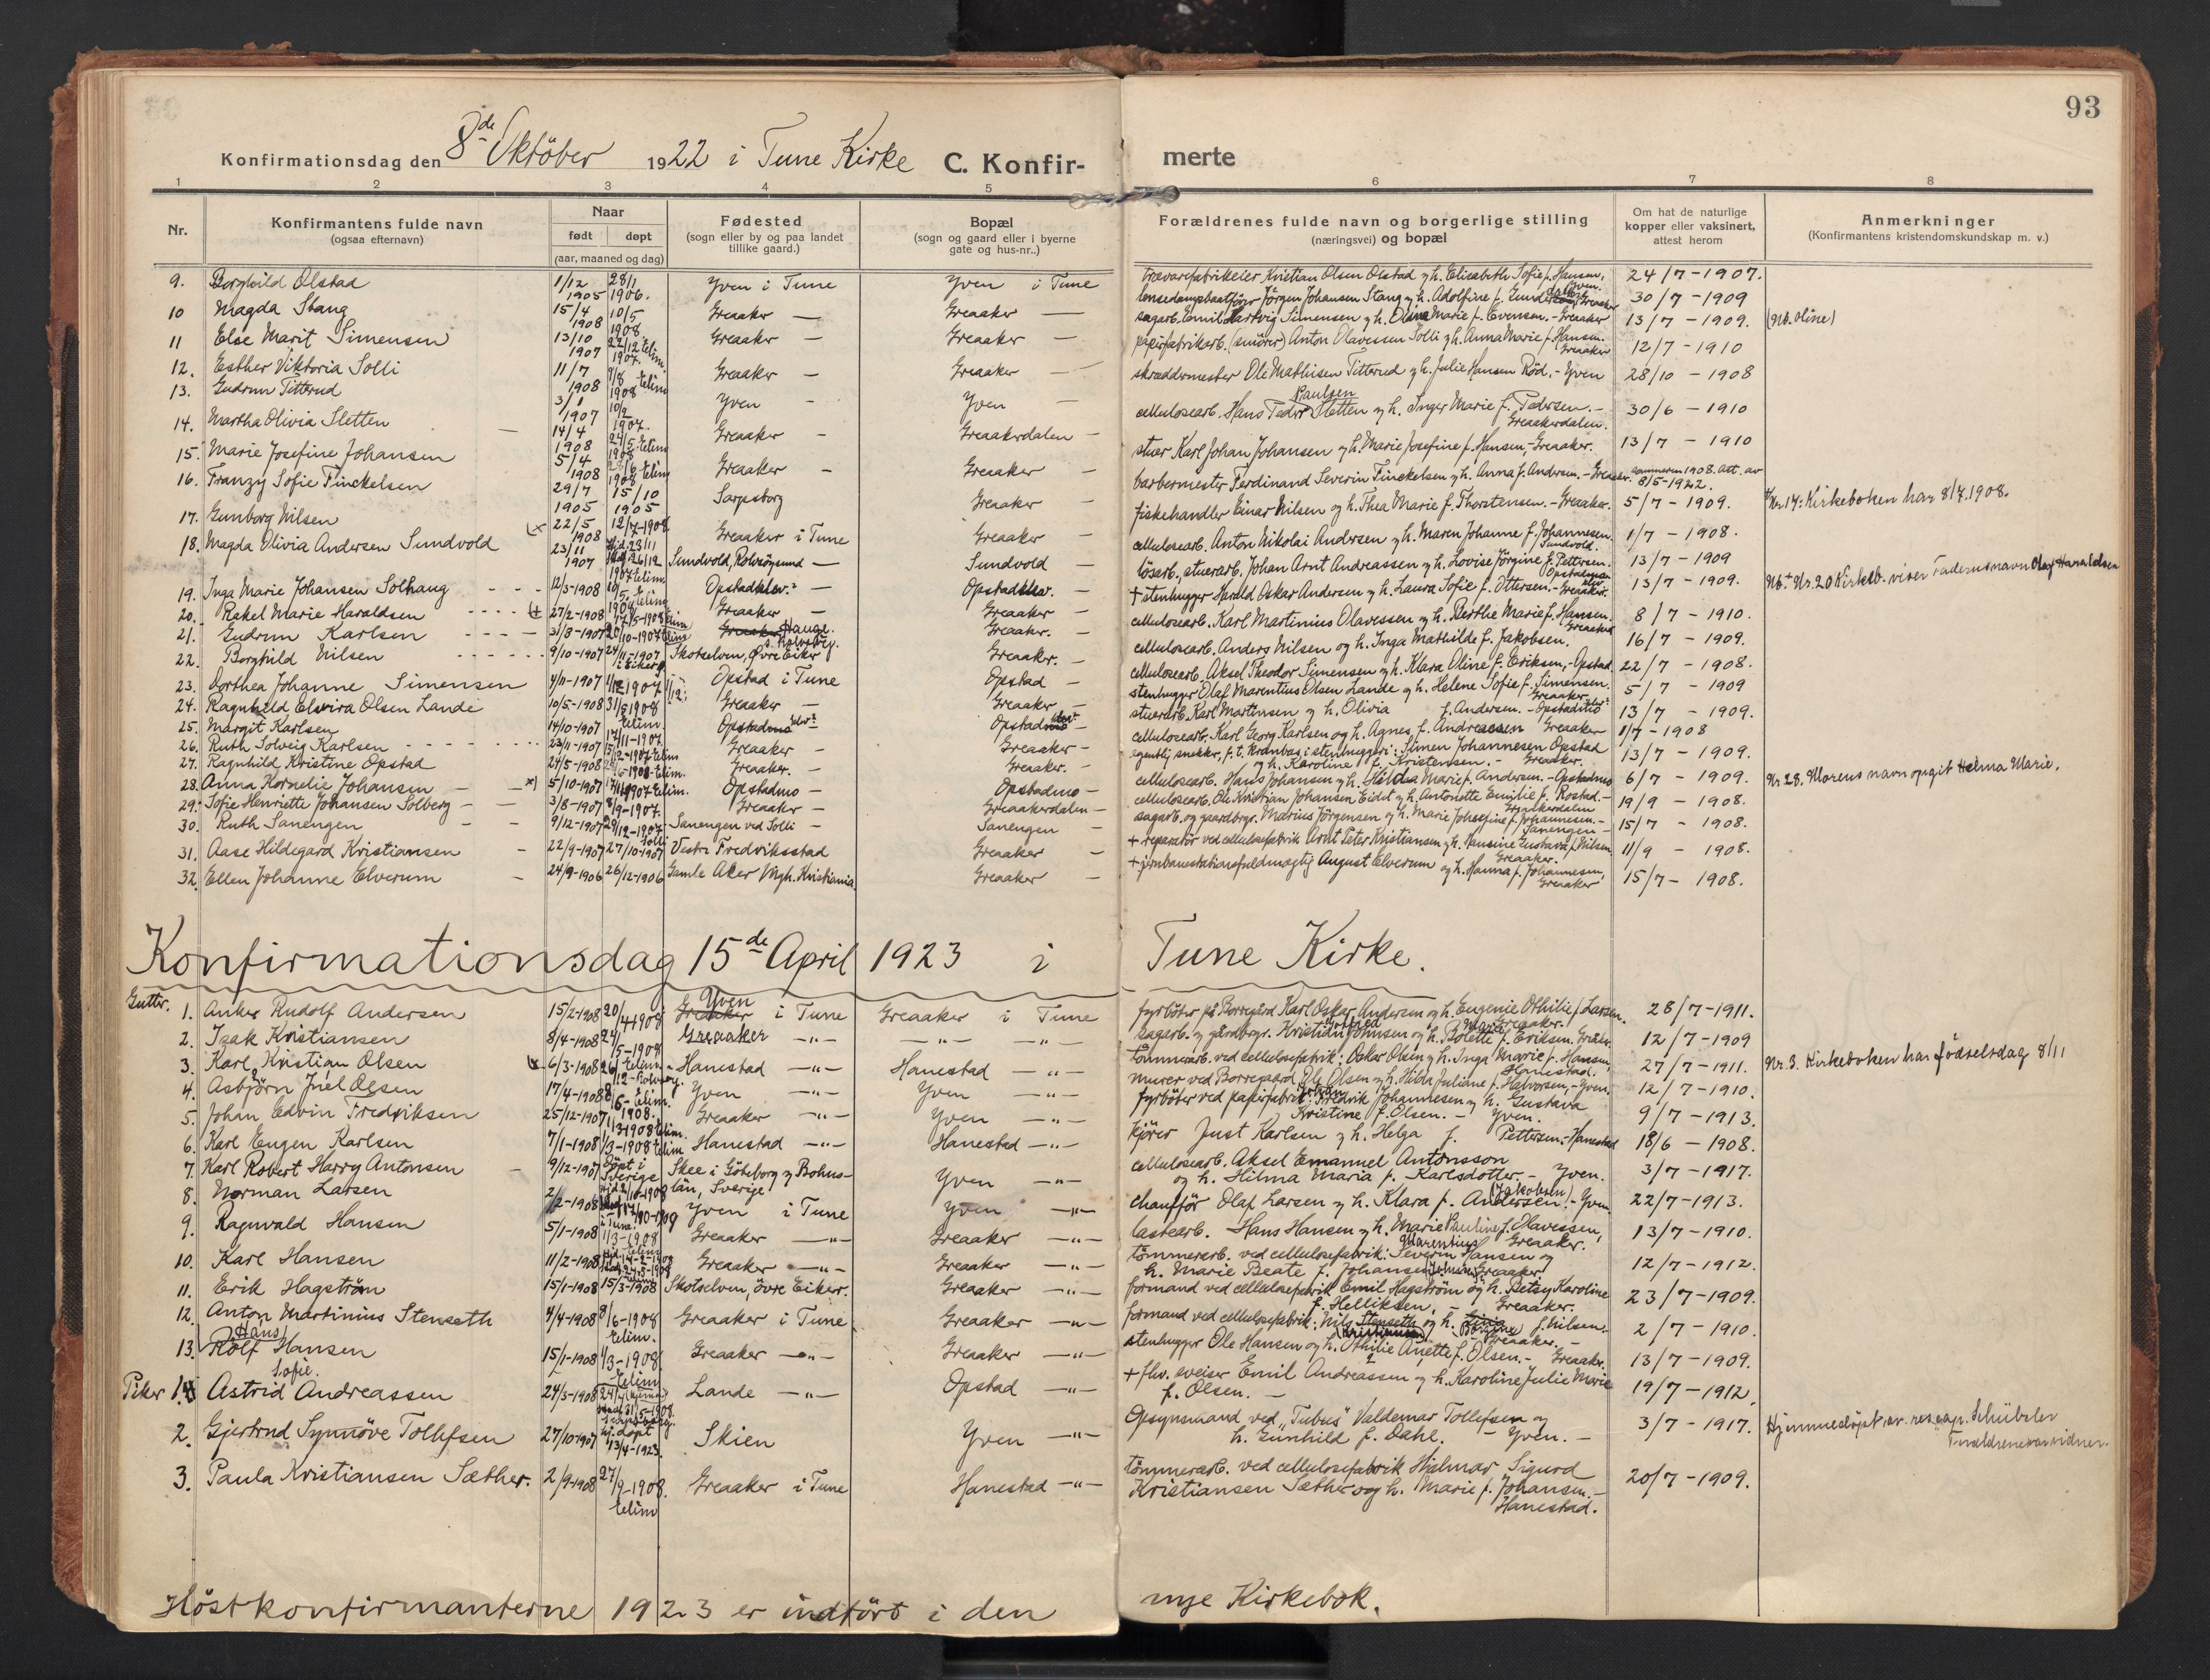 93
Konfirmationsdag den 8de Oktober 1922 i Tune Kirke C. Konfir- merte
1 2 3 4 5 6 7 8
Nr. Konfirmantens fulde navn (ogsaa efternavn) Naar født døpt (aar, maaned og dag) Fødested (sogn eller by og paa landet tillike gaard.) Bopæl (sogn og gaard eller i byerne gate og hus-nr..) Forældrenes fulde navn og borgerlige stilling (næringsvei) og bopæl Om hat de naturlige kopper eller vaksinert, attest herom Anmerkninger (Konfirmantens kristendomskundskap m. v.)
9. Borghild Olstad 1/12 1905 28/1 1906. Yven i Tune Yven i Tune trævarefabrikeier Kristian Olsen Olstad og h. Elisabeth Sofie f. Hansen, Yven. 24/7-1907.
10 Magda Stang 15/4 1908 10/5 1908 Greaaker — Greaaker — Jörgen Johansen Stang og h. Adolfine f. 30/7-1909
11 Else Marit Simensen 13/10 1907 22/12 Elim. 1907. Greaaker — Greaaker — sagarb. Emil Hartvig Simensen og h. Olina Marie f. Evensen. - Greaaker 13/7-1909. (Nb. Oline)
12. Esther Viktoria Solli 11/7 1908 9/8 1908 Elim Greaaker — Greaaker — papirfabrikarb. (smörer) Anton Olavessen Solli og h. Anna Marie f. Hansen. Greaaker 12/7-1910
13. Gudrun Titterud 3/1 1907 10/2 1907. Yven — Yven — skræddermester Ole Mathisen Titterud og h. Julie Hansen Röd. - Yven 28/10 - 1908
14. Martha Olivia Sletten — 14/4 1908 24/5 Elim 1908 Greaaker — Greaakerdalen — cellulosearb. Hans Peder Paulsen Sletten og h. Inger Marie f. Pedersen. - Greaakerdalen. 30/6 - 1910
15. Marie Josefine Johansen 5/4 1908 Elim 1908 Greaaker — Greaaker — stuer Karl Johan Johansen og h. Marie Josefine f. Hansen, - Greaaker. 13/7 - 1910
16. Franzy Sofie Finckelsen 29/7 1905 15/10 1905 Sarpsborg Greaaker — barbermester Ferdinand Severin Finckelsen og h. Anna f. Andersen. - Greaaker. sommeren 1908. Att. av 8/5-1922.
17. Gunborg Nilsen 22/5 1908 12/7-1908 Greaaker i Tune Greaaker — fiskehandler Einar Nilsen og h. Thea Marie f. Thorstensen. - Greaaker. 5/7 - 1909. Nr. 17: Kirkeboken har 8/7.1908.
18. Magda Olivia Andersen Sundvold 23/11 1907 26/12 1907 Elim. Sundvold, Rolvsöysund — Sundvold — cellulosearb. Anton Nikolai Andersen og h. Maren Johanne f. Johannesen. Sundvold. 1/7 - 1908.
19. Inga Marie Johansen Solhaug 12/3-1908 Elim Opstadklev. — Opstadklev. — lösarb., stuerarb. Johan Arnt Andreassen og h. Lovise Jörgine f. Pettersen. 13/7 - 1909
20. Rakel Marie Haraldsen 27/2-1908 17/5-1908 Elim Greaaker — Greaaker — + stenhugger Harald Oskar Andersen og h. Laura Sofie f. Ottersen. - Greaaker. 13/7 - 1909. Nb. + Nr. 20 Kirkeb. viser Faderens navn Olaf Haraldsen
21. Gudrun Karlsen 31/8-1907 20/10-1907 Elim Greaaker Hauge. Greaaker. — cellulosearb. Karl Martinius Olavessen og h. Berthe Marie f. Hansen. Greaaker 8/7 - 1910.
22. Borghild Nilsen 9/10-1907 24/11-1907 i Eiker Skotselven, Övre Eiker Greaaker. — cellulosearb. Anders Nilsen og h. Inga Mathilde f. Jakobsen. 16/7 - 1909.
23. Dorthea Johanne Simensen 4/11-1907 1907 Opstad i Tune Opstad — cellulosearb. Aksel Theodor Simensen og h. Klara Oline f. Eriksen, - Opstad 22/7 - 1908.
24. Ragnhild Elvira Olsen Lande 10/5-1908 31/5 1908 Elim. Greaaker — Greaaker — stenhugger Olaf Marentius Olsen Lande og h. Helene Sofie f. Simensen. Greaaker. 5/7 - 1909
25. Margit Karlsen 14/10-1907 17/11-1907. Opstadmo — Opstadmo — stuerarb. Karl Martinsen og h. Olivia f. Andersen. - Opstadmo 13/7 - 1909.
26. Ruth Solveig Karlsen 23/11-1907 15/12-1907 Elim Greaaker — Greaaker — cellulosearb. Karl Georg Karlsen og h. Agnes f. Andreassen Greaaker 1/7 - 1908
27. Ragnhild Kristine Opstad 24/5-1908 1908-Elim. Greaaker. — Greaaker. — egentlig snekker, f. t. i stenhuggeri: Simen Johannesen Opstad og h. Karoline f. Kristensen. - Greaaker. 13/7 - 1909.
28. Anna Kornelie Johansen — x) 5/10-1907 17/11 1907 Elim. Opstadmo — Opstadmo — cellulosearb. Hans Johansen og h. Hilda Marie f. Andersen. - Opstadmo 6/7 - 1909. Nr. 28. Morens navn opgit Helma Marie.
29. Sofie Henriette Johansen Solberg — 3/8-1907 8/9-1907. Greaaker — Greaakerdalen — cellulosearb. Ole Kristian Johansen Eidet og h. Antonette Emilie f. Rostad. - Greaakerdalen 19/9 - 1908.
30. Ruth Sanengen — 9/12-1907 29/12-1907. Solli Sanengen ved Solli — Sanengen — sagarb. og gaardbrgr. Marius Jörgensen og h. Marie Josefine f. Johannesen. - Sanengen - 15/7 - 1908.
31. Aase Hildegard Kristiansen — 22/9-1907 27/10-1907 Vestre Fredriksstad Greaaker — + reparatör ved cellulosefabrik Arnt Peter Kristiansen og h. Pausine Gustava f. Nilsen Greaaker. 11/9 - 1908.
32. Ellen Johanne Elverum — 24/9-1906 26/12-1906 Gamle Aker Mgh. Kristiania Greaaker — + jernbanestationsfuldmægtig August Elverum og h. Hanna f. Johannesen, Greaaker 15/7 - 1908.
Konfirmationsdag 15de April 1923 i Tune Kirke.
Gutter. 1. Anker Rudolf Andersen 15/2-1908 20/4 1908 Greaaker Yven i Tune Greaaker i Tune fyrböter på Borregård Karl Oskar Andersen og h. Eugenie Othilie f. Larsen. Greaaker. 28/7-1911.
2. Isak Kristiansen 8/4-1908 24/5-1908 Greaaker —"— —"— —"— sagarb. og gårdbrgr. Kristian Johnsen og h. Bolette Marie f. Eriksen. 12/7-1909
3. Karl Kristian Olsen 6/3-1908 26/ Elim - Hanestad —"— Hanestad —"— tömmerarb. ved cellulosefabrik: Oskar Olsen og h. Inga Marie f. Hansen, Hanestad. 27/7-1911. Nr. 3. Kirkeboken har födselsdag 8/11
4. Asbjörn Juel Olsen 17/4-1908 Elim. Yven —"— Yven —"— murer ved Borregaard Ole Olsen og h. Hilda Juliane f. Halvorsen, - Yven. 12/7-1910.
5. Johan Edvin Fredriksen 25/12-1907 1908. Greaaker —"— Yven —"— fyrböter ved papirfabrik: Johan Fredrik Johannesen og h. Gustava Kristine f. Olsen. - Yven. 9/7-1913.
6. Karl Eugen Karlsen 7/1-1908 1/3-1908 Elim Hanestad —"— Hanestad —"— kjörer Just Karlsen og h. Helga f. Pettersen. - Hanestad 18/6 - 1908.
7. Karl Robert Harry Antonsen — 9/12-1907 Döpt i Sverige Skee i Göteborg og Bohus- län, Sverige Yven —"— cellulosearb. Aksel Emanuel Antonsson og h. Hilma Maria f. Karlsdotter. - Yven. 3/7-1917.
8. Norman Larsen 2/2-1908 Yven i Tune Yven —"— chaufför Olaf Larsen og h. Klara f. Andersen (Jakobsen). - Yven. 22/7-1913.
9. Ragnvald Hansen 5/1-1908 1/3-1908 Greaaker —"— Greaaker —"— lastearb. Hans Hansen og h. Marie Pauline f. Olavessen, Greaaker. 13/7-1910.
10. Karl Hansen 11/2-1908 Greaaker —"— Greaaker —"— tömmerarb. ved cellulosefabrik: Severin Marentius Hansen og h. Marie Beate f. Johansen Greaaker 12/7-1912.
11. Erik Hagström 15/1-1908 15/3-1908 Skotselven, övre Eiker. Greaaker —"— formand ved cellulosefabrik Emil Hagström og h. Betsy Karoline f. Helliksen, - Greaaker. 23/7-1909.
12. Anton Martinius Stenseth 4/4-1908 8/6-1908 Elim. Greaaker i Tune Greaaker —"— formand ved cellulosefabrik: Nils Stenseth (Kristiansen) og h. f. Nilsen. Greaaker. - 2/7-1910.
13. Rolf Hans Hansen 15/1-1908 1/3-1908 Elim Greaaker —"— Greaaker —"— stenhugger Ole Hansen og h. Othilie Anette f. Olsen. - Greaaker. 13/7-1909.
Piker 1. Astrid Sofie. Andreassen 24/3-1908 Lande —"— Opstad —"— + fhv. sveiser Emil Andreassen og h. Karoline Julie Marie f. Olsen. - 19/7-1912.
2. Gjertrud Synnöve Tollefsen 27/10-1907 hj. döpt 13/4-1923. Skien Yven —"— Opsynsmand ved "Tubus" Valdemar Tollefsen og h. Gunhild f. Dahl. - Yven. - 3/7 - 1917. Hjemmedöpt av res. kap. Schübeler Forældrene var vidner.
3. Paula Kristiansen Sæther. 2/9-1908 27/9-1908. Elim Greaaker i Tune Hanestad —"— tömmerarb. ved cellulosefabrik Hjalmar Sigurd Kristiansen Sæther og h. Marie f. Johansen. - Hanestad. 20/7-1909.
Höstkonfirmanterne 1923 er indfört i den nye Kirkebok.